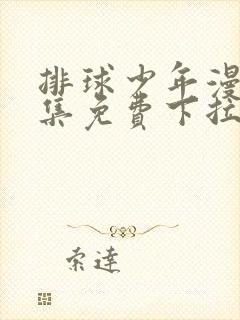 排球少年漫
集免費下拉
索達